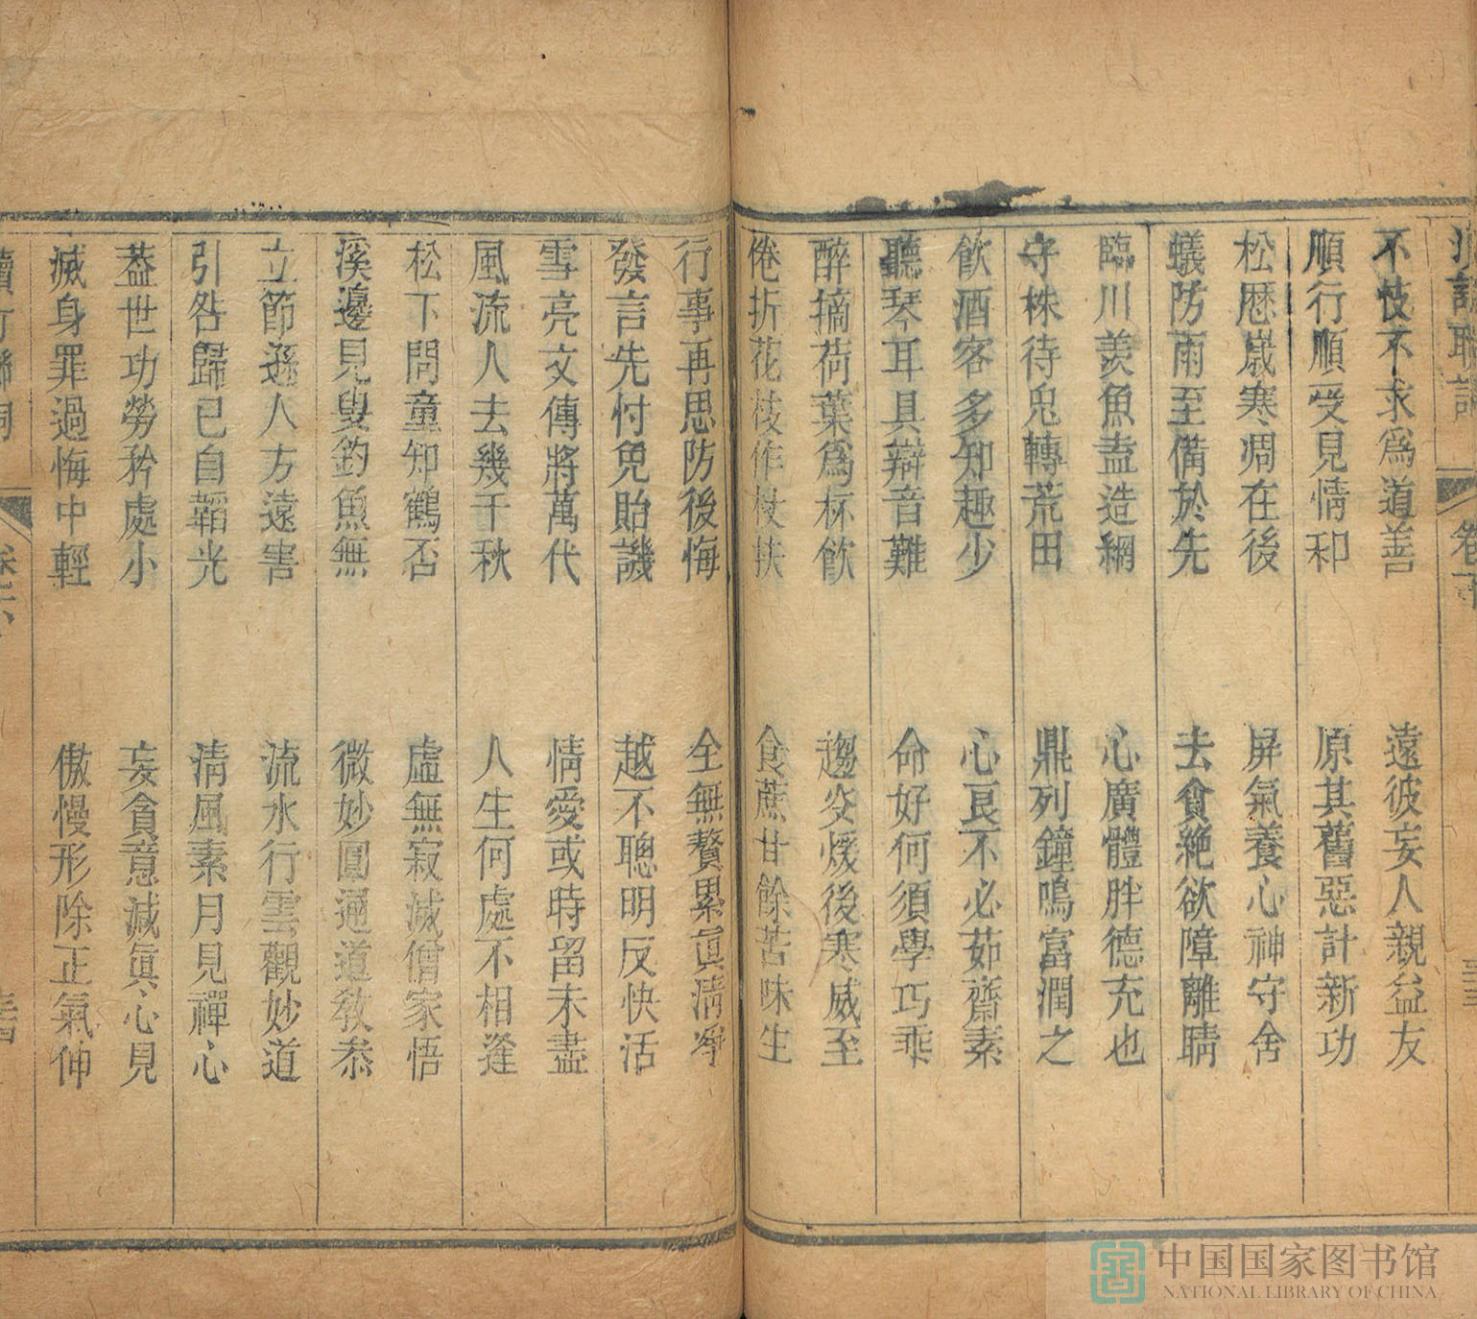 不忮不求為道善　遠彼妄人親益友
順行順受見情和　原其舊惡計新功
松歷歲寒凋在後　屏氣養心神守舍
蟻防雨至備於先　去貪絶欲障離睛
臨川羨魚盍造網　心廣體胖德充也
守株待兔轉荒田　鼎列鐘鳴富潤之
飲酒客多知趣少　心良不必茹齋素
聽琴耳具辯音難　命好何須學巧乖
醉摘荷葉為杯飲　趨炎煖後寒威至
倦折花枝作杖扶　食蔗甘餘苦味生
行事再思防後悔　全無贅累眞清凈
發言先忖免貽譏　越不聰明反快活
雪亮文傳將萬代　情愛或時留未盡
風流人去幾千秋　人生何處不相逢
松下問童知鶴否　虛無寂滅僧家悟
溪邊見叟釣魚無　微妙圓通道教叅
立節遜人方遠害　流水行雲觀妙道
引咎歸已自韜光　清風素月見禪心
葢世功勞矜處小　妄貪意減眞心見
滅身罪過悔中輕　傲慢形除正氣伸
中国国家图书馆
NATIONAL LIBRARY OF CHINA